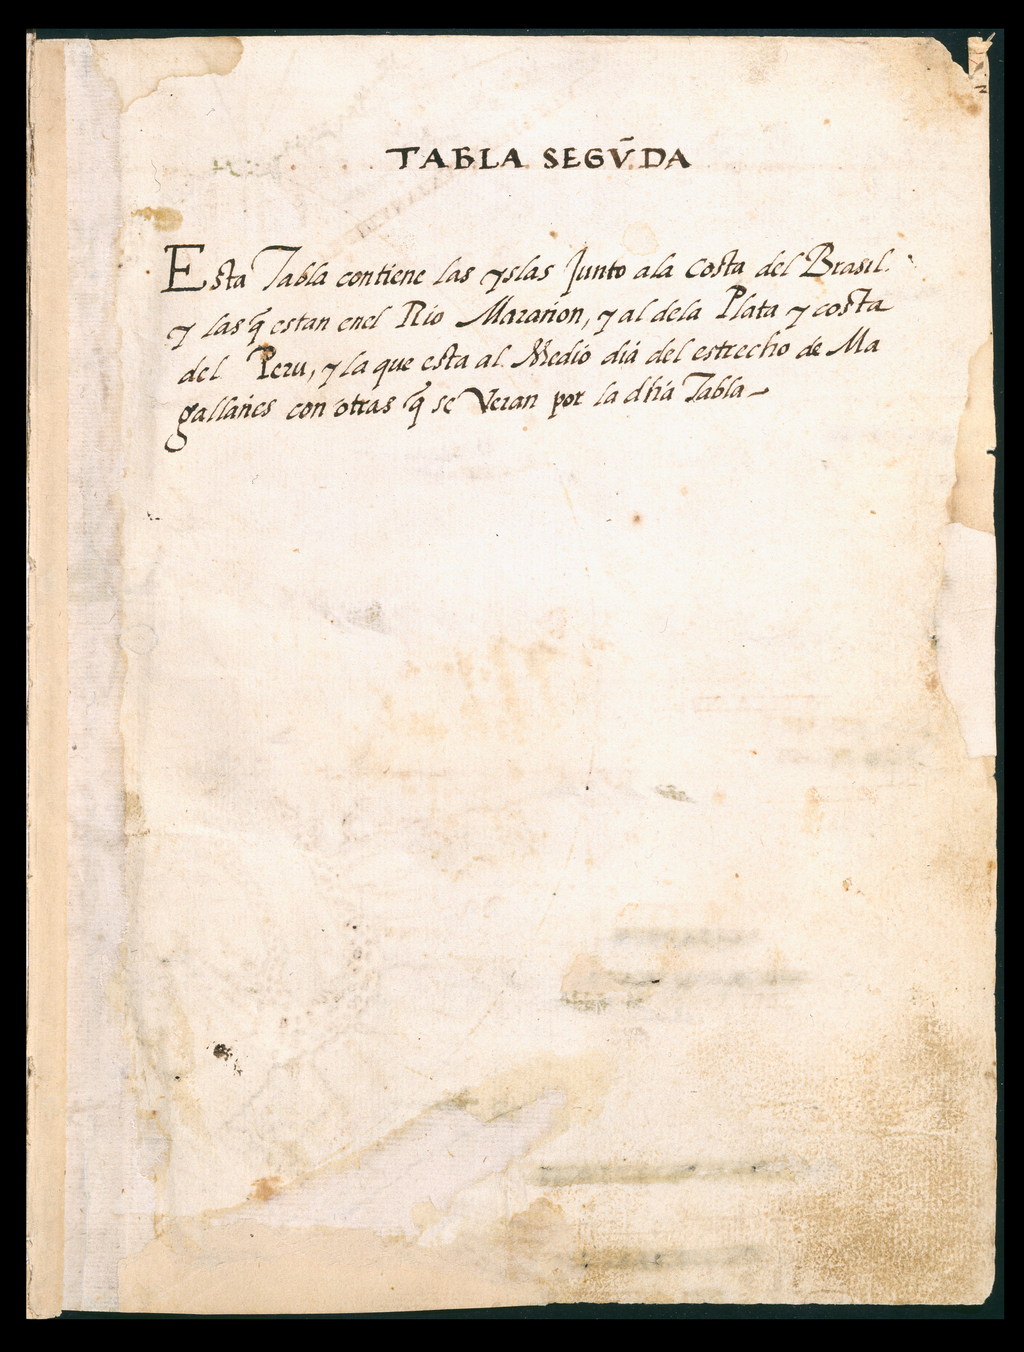 TABLA SEGV̄DA
Esta Tabla contiene las yslas Junto ala costa del Brasil.
y las q̃ estan enel Rio Marañon, y al dela Plata y costa
del Peru, y la que esta al Medio dia del estrecho de Ma
gallañes con otras q̃ se Veran por la dh̃a Tabla~